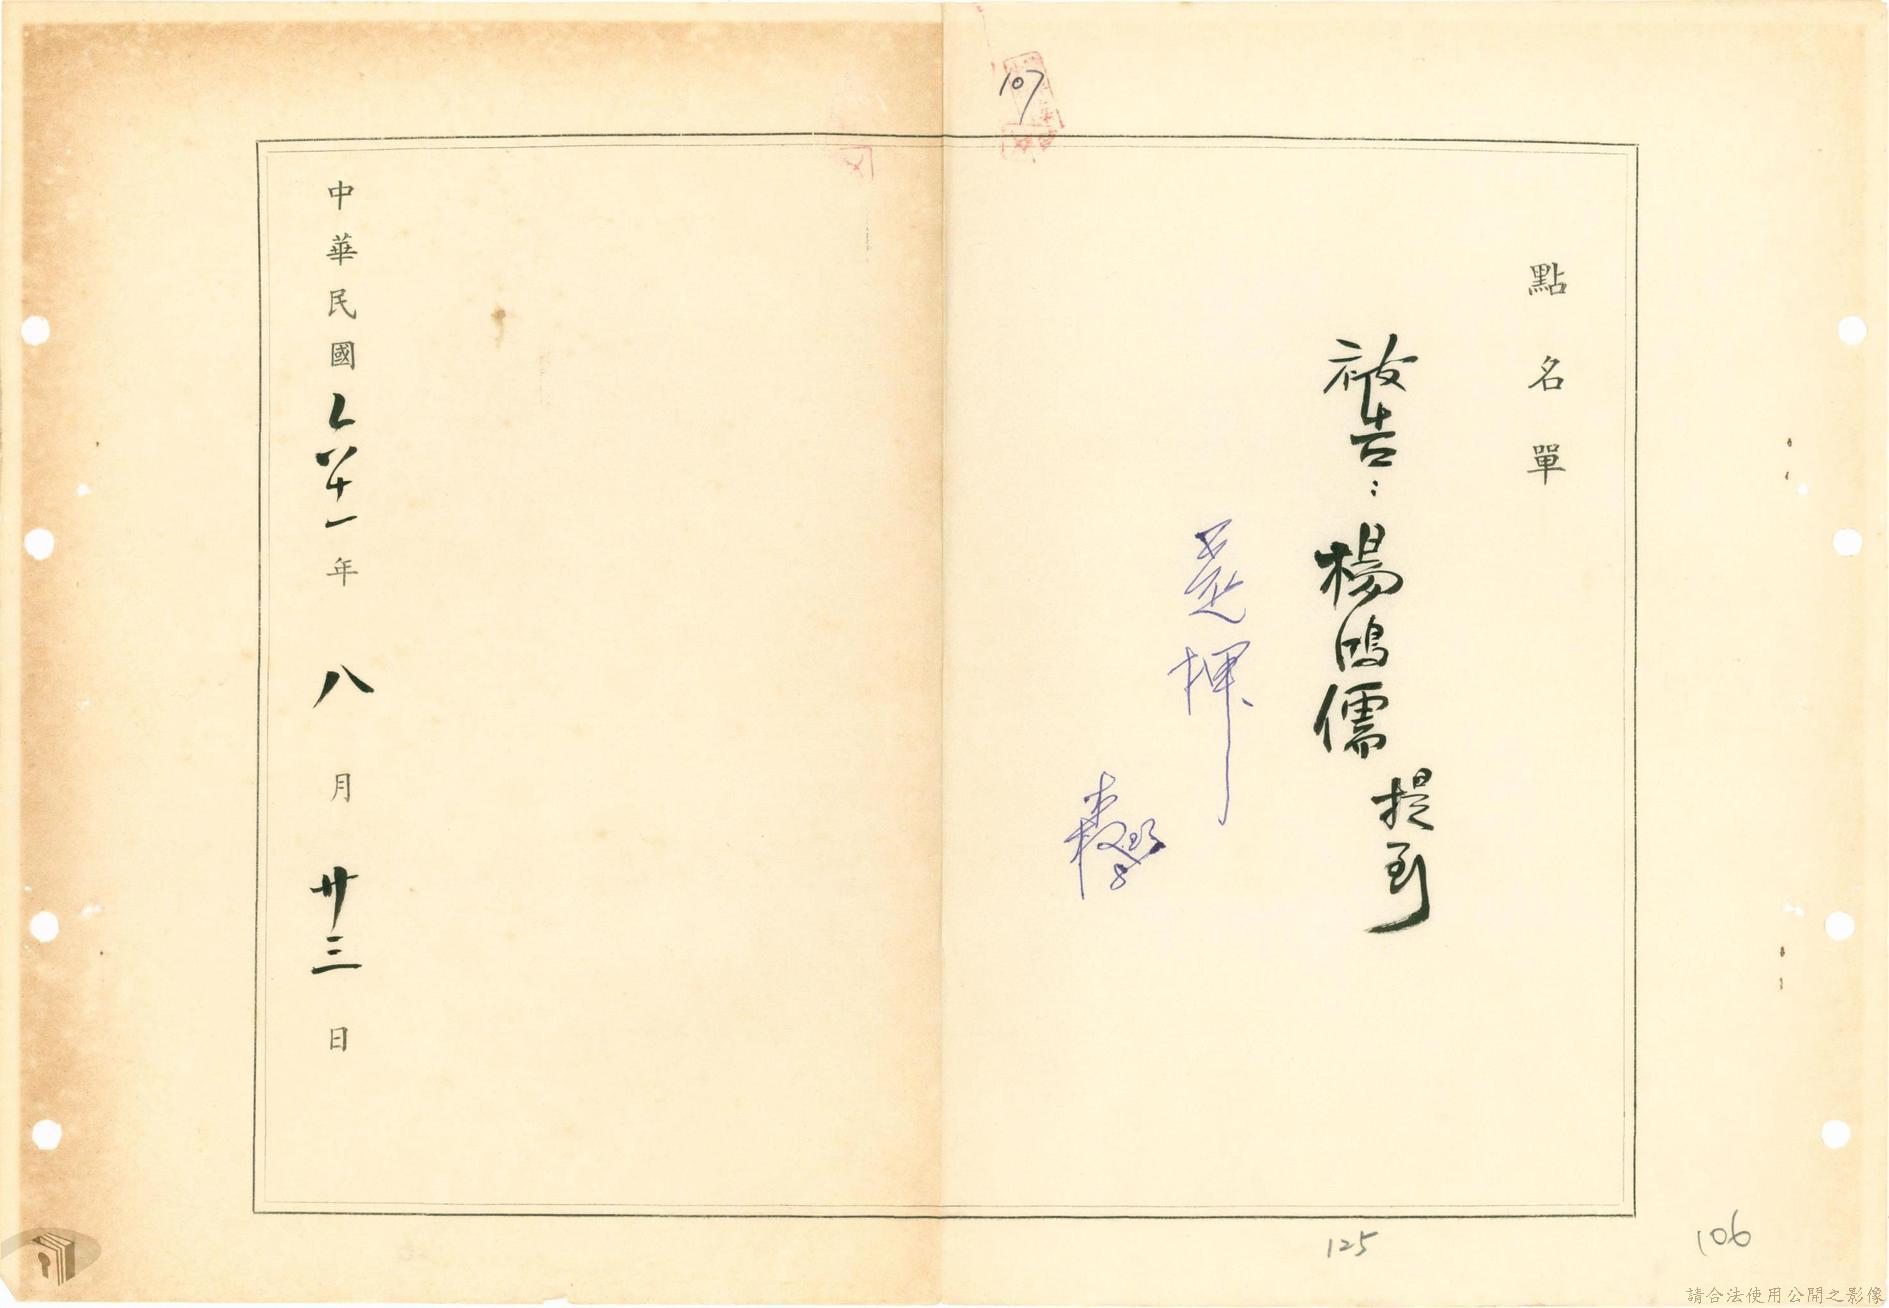 107
點名單
被告：楊鴻儒 提到
還押
中華民國六十一年八月廿三日
125
106
請合法使用公開之影像